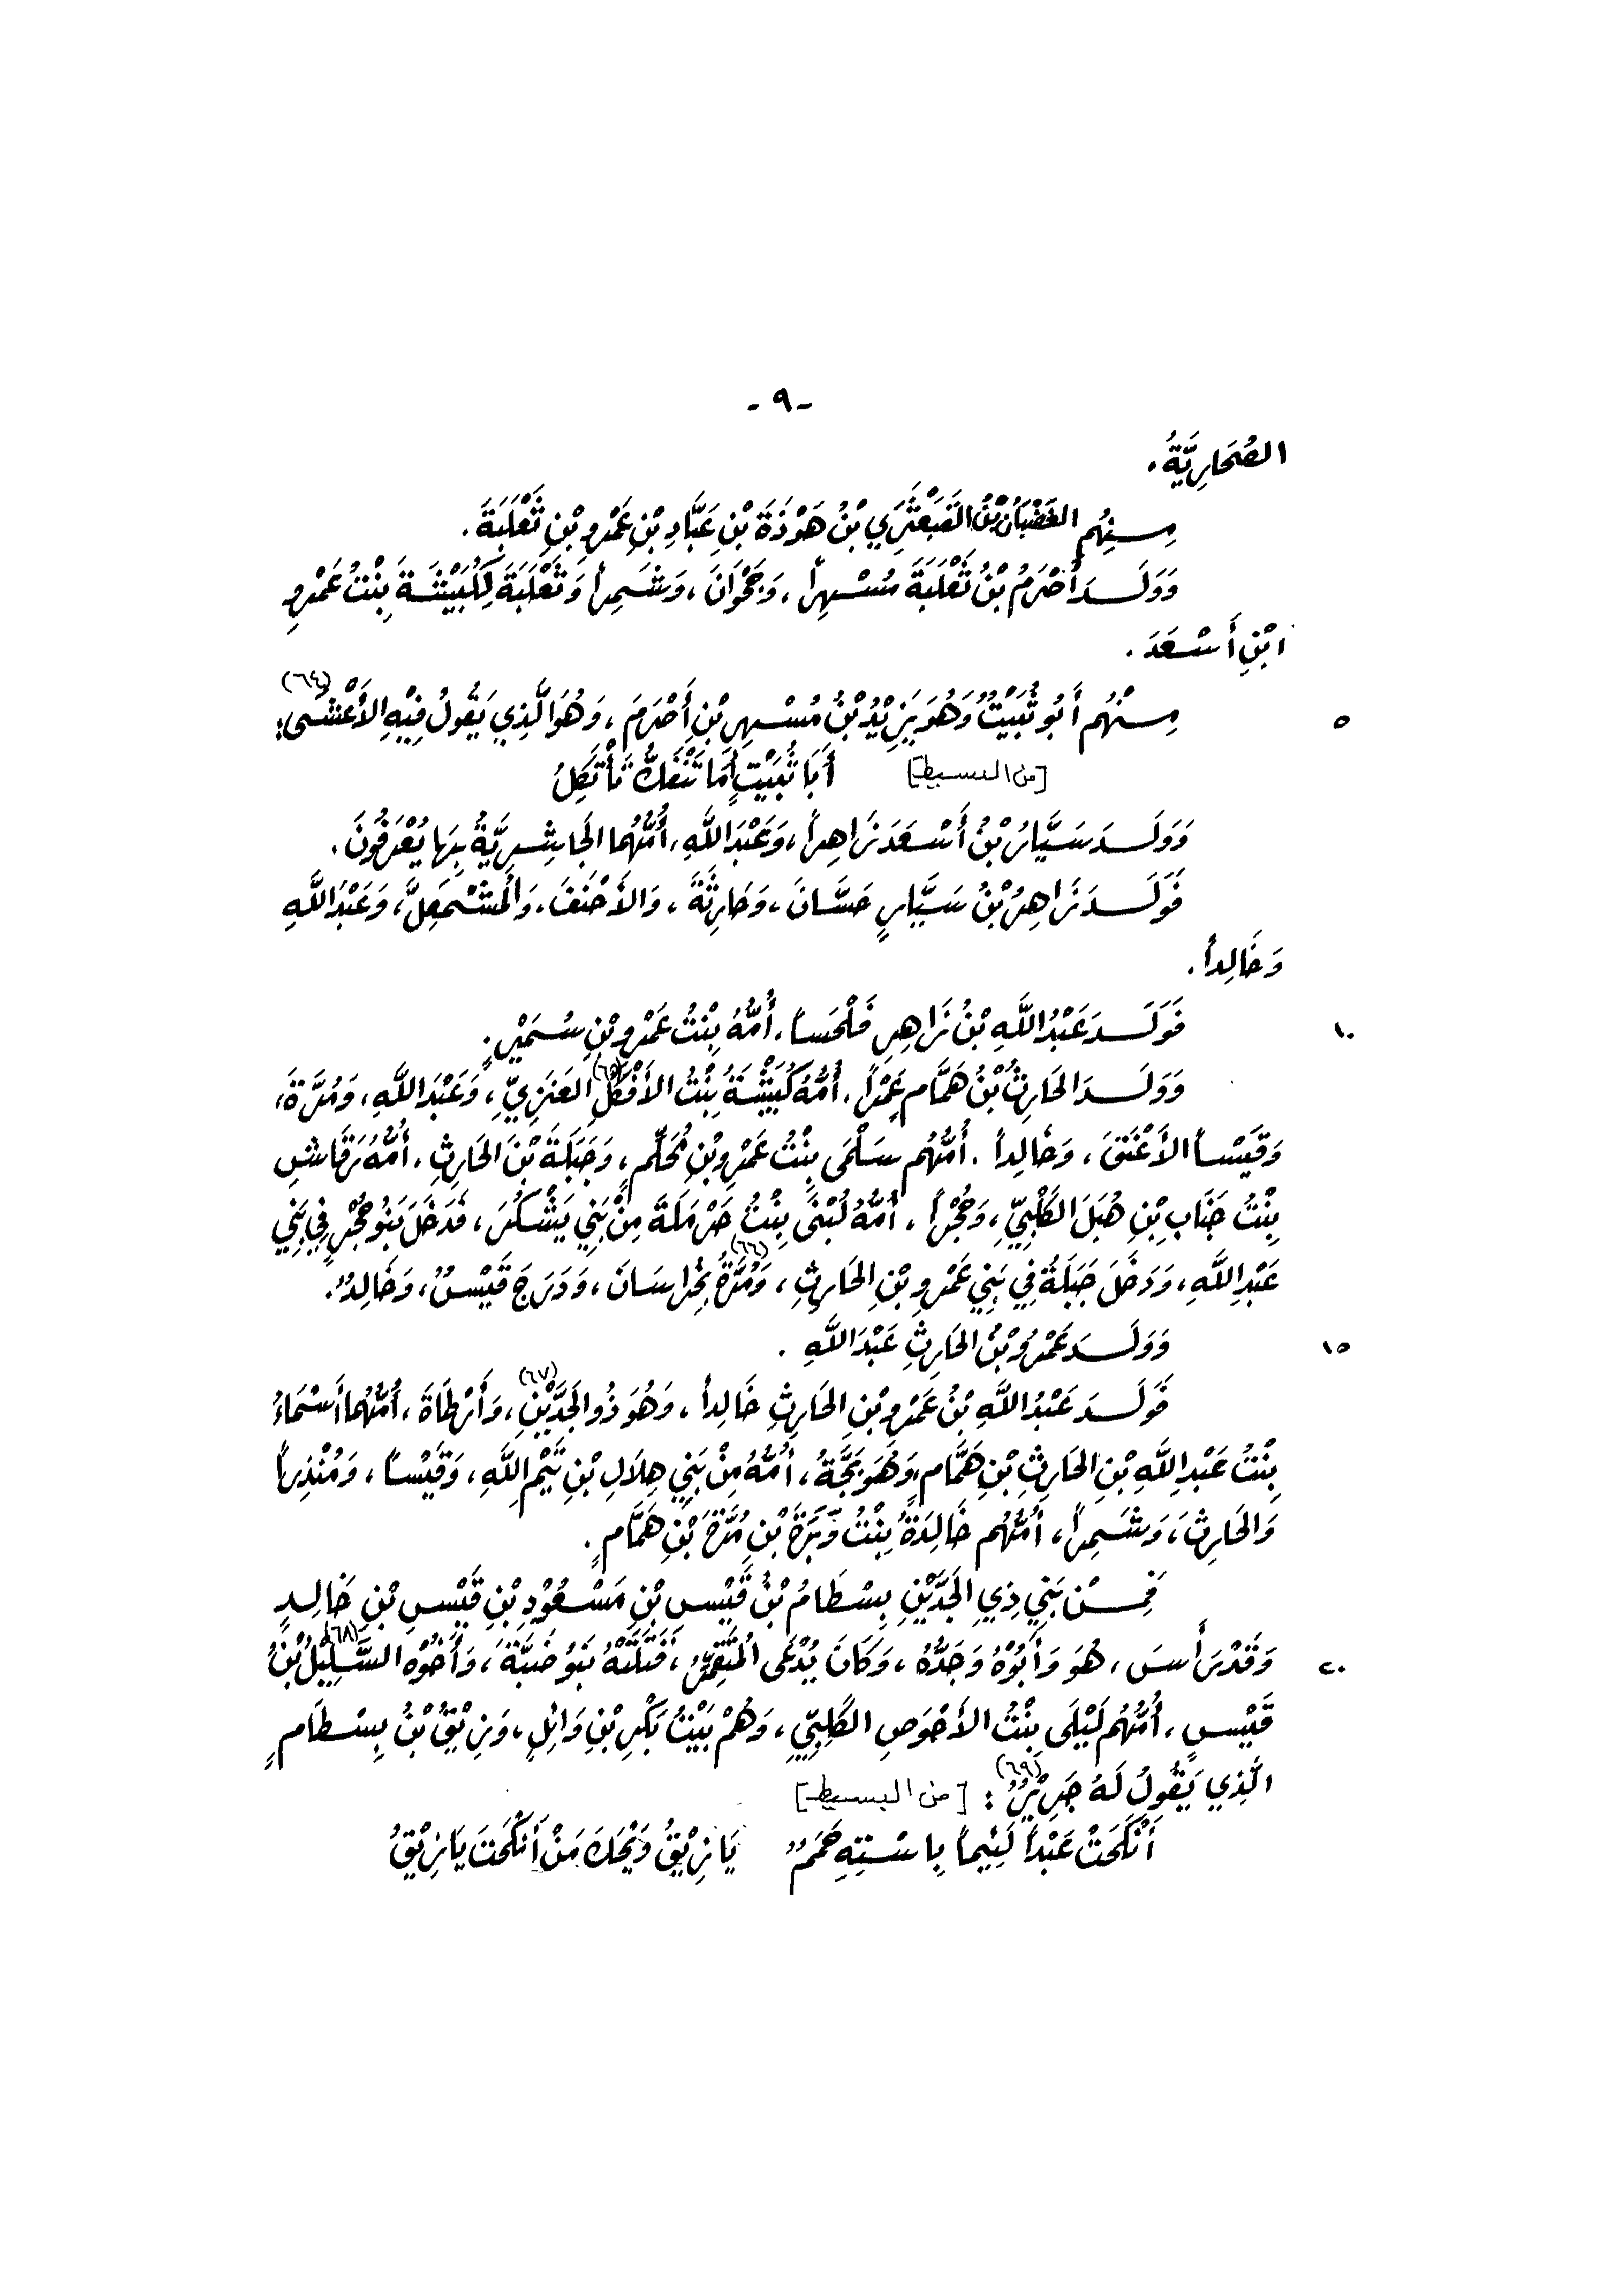 - ٩ -
الصُّحَارِيَّةُ.
مِنْهُم الغَضْبَانُ بْنُ القَبَعْثَرِي بْنُ هَوْذَةَ بْنِ عَبَّادِ بْنِ عَمْرِو بْنِ ثَعْلَبَةَ.
وَوَلَدَ أَصْرَمُ بْنُ ثَعْلَبَةَ مُسْهِراً، وَجَحْوَانَ، وَشَمِراً وَثَعْلَبَةَ لِكُبَيْشَةَ بِنْتُ عَمْرِو
ابْنِ أَسْعَدَ.
٥ مِنْهُم أَبُو ثُبَيْتٍ وَهُوَ يَزِيْدُ بْنُ مُسْهِرِ بْنِ أَصْرَمَ، وَهُوَ الَّذِي يَقُولُ فِيْهِ الأَعْشَى: (٦٤)
[من البسيط] أَبَا ثُبَيْتٍ أَمَا تَنْفَكُّ تَأْتَكِلُ
وَوَلَدَ سَيَّارُ بْنُ أَسْعَدَ زَاهِراً، وَعَبْدَ اللَّهِ، أُمُّهُما الجَاشِرِيَّةُ بِهَا يُعْرَفُونَ.
فَوَلَدَ زَاهِرُ بْنُ سَيَّارٍ حَسَّانَ، وَحَارِثَةَ، وَالأَحْنَفَ، وَالمُشْمَعِلَّ، وَعَبْدَ اللَّهِ
وَخَالِداً.
١٠ فَوَلَدَ عَبْدُ اللَّهِ بْنُ زَاهِرِ فَلْحَساً، أُمُّهُ بِنْتُ عَمْرِو بْنِ سُمَيْرٍ.
وَوَلَدَ الحَارِثُ بْنُ هَمَّامٍ عَمْراً، أُمُّهُ كُبَيْشَةُ بِنْتُ الأَفْكَلِ (٦٥) العَنَزِيِّ، وَعَبْدَ اللَّهِ، وَمُرَّةَ،
وَقَيْساً الأَعْنَقَ، وَخَالِداً. أُمُّهُم سَلْمَى بِنْتُ عَمْرِو بْنِ مُحَلِّمٍ، وَجَبَلَةَ بْنَ الحَارِثِ، أُمُّهُ رَقَاشِ
بِنْتُ جَنَابِ بْنِ هُبَلَ الكَلْبِيِّ، وَحُجْراً، أُمُّهُ لُبْنَى بِنْتُ حَرْمَلَةَ مِنْ بَنِي يَشْكُرَ، فَدَخَلَ بَنُو حُجْرٍ فِي بَنِي
عَبْدِ اللَّهِ، وَدَخَلَ جَبَلَةُ فِي بَنِي عَمْرِو بْنِ الحَارِثِ، (٦٦) وَمُرَّةُ بِخُرَاسَانَ، وَدَرَجَ قَيْسٌ، وَخَالِدٌ.
١٥ وَوَلَدَ عَمْرُو بْنُ الحَارِثِ عَبْدَ اللَّهِ.
فَوَلَدَ عَبْدُ اللَّهِ بْنُ عَمْرِو بْنِ الحَارِثِ خَالِداً، وَهُوَ ذُو الجَدَّيْنِ (٦٧)، وَأَرْطَاةَ، أُمُّهُما أَسْمَاءُ
بِنْتُ عَبْدِ اللَّهِ بْنِ الحَارِثِ بْنِ هَمَّامٍ، وَهُوَ بَجَّةُ، أُمُّهُ مِنْ بَنِي هِلَالِ بْنِ تَيْمِ اللَّهِ، وَقَيْساً، وَمُنْذِراً
وَالحَارِثَ، وَشَمِراً، أُمُّهُم خَالِدَةُ بِنْتُ وَبَرَةَ بْنِ مُرَّةَ بْنِ هَمَّامٍ.
فَمِنْ بَنِي ذِي الجَدَّيْنِ بِسْطَامُ بْنُ قَيْسِ بْنِ مَسْعُوْدِ بْنِ قَيْسِ بْنِ خَالِدٍ
٢٠ وَقَدْ رَأَسَ، هُوَ وَأَبُوْهُ وَجَدُّهُ، وَكَانَ يُدْعَى المُتَقَمِّرُ، قَتَلَتْهُ بَنُو ضَبَّةَ، وَأَخُوْه السَّلِيْلُ (٦٨) بْنُ
قَيْسٍ، أُمُّهُم لَيْلَى بِنْتُ الأَحْوَصِ الكَلْبِيِّ، وَهُمْ بَيْتُ بَكْرِ بْنِ وَائِلٍ، وَزِيْقُ بْنُ بِسْطَامٍ
الَّذِي يَقُولُ لَهُ جَرِيْرٌ (٦٩): [من البسيط]
أَنْكَحْتَ عَبْداً لَئِيماً بِاسْتِهِ حَمَمٌ يَا زِيْقُ وَيْحَكَ مَنْ أَنْكَحْتَ يَا زِيْقُ